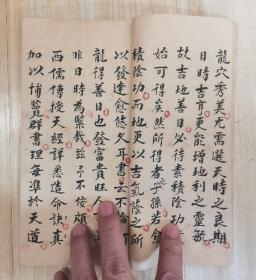 龍穴秀美尤需選天時之良期
日時吉育更能增地利之靈敏
故吉地善日必待素積陰功
始可得矣然所得者子孫若會
積陰功而地更以吉氣蔭之所
以發達愈悠久耳書云不
龍得善日也發富貴旺人
非日時為緊哉余不佞頗
西儒傳授天經詳悉造命訣真
加以博覽群書理每準於天道